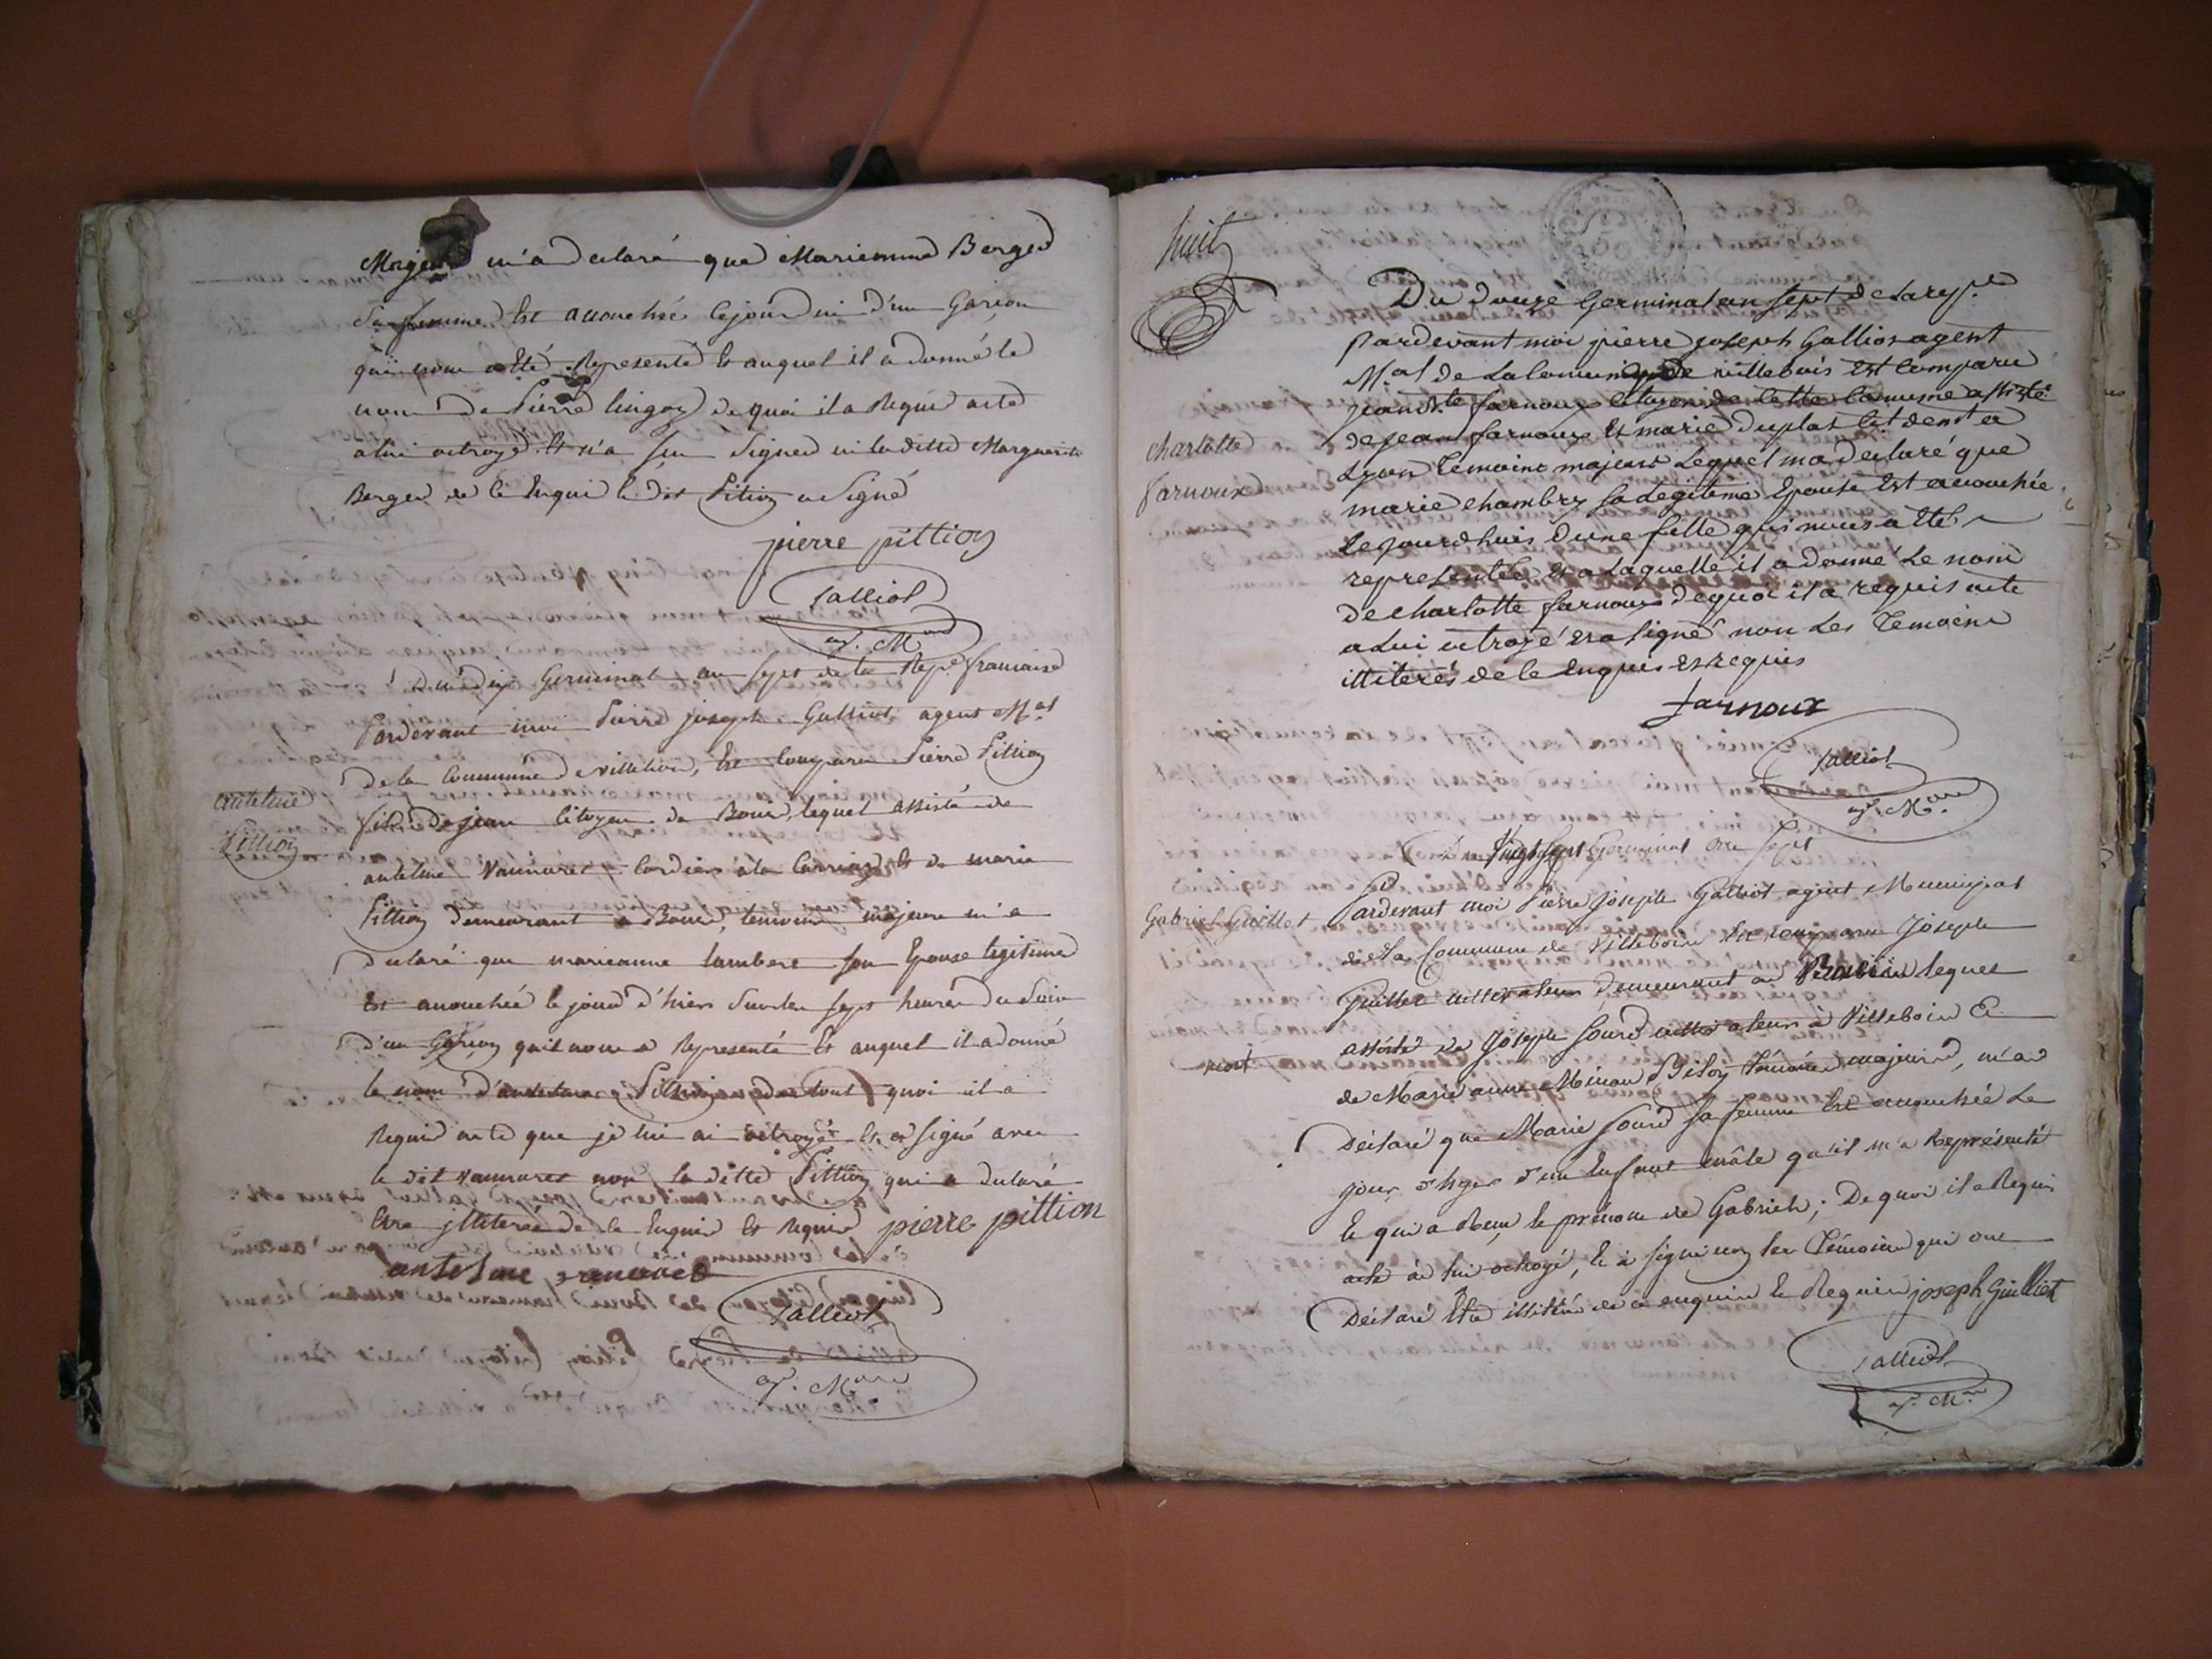 Majeurs m'a declaré que Marieanne Berger
sa femme Est acouchée cejourdui d'un Garçon
qui nous a été Representé Et auquel il a donné le
nom de Pierre lingoz de quoi il a Requis acte
a lui octroyé Et n'a seu Signer ni laditte Marguerite
Berger de ce Enquis le dit Pition a Signé
pierre pittion
Galliot
ag. Mal
Du dix Germinal an sept de la Repe francaise
Pardevant moi Pierre joseph Galliot agent Mal
de la Commune de villebois, Est Comparu Pierre Pittion
fils de jean Citoyen de Bouis, lequel assisté de
anteline
Pittion
antelme Vannaret Cordier à la Carriaz Et de marie
Pittion demeurant a Bouis, temoins majeurs m'a
declaré que marieanne Lambert son Epouse legitime
Est acouchée le jour d'hier Sur les sept heures du Soir
d'un Garçon qu'il nous a Representé Et auquel il a donné
le nom d'antelme Pittion de tout quoi il a
Requis acte que je lui ai octroyé Et a Signé avec
le dit Vannaret non la ditte Pittion qui a declaré
Etre jlliterée de ce Enquis Et Requis pierre pittion
antelme
Galliot
ag. Mal
huit
Du douze Germinal an sept de la repe
Pardevant moi pierre joseph Galliot agent
Mal de La Comune de villebois Est Comparu
jean Bte farnoux Citoyen de Cette Comune assisté
de jean farnoux Et marie duplat
charlotte
farnoux
Lyon Temoins majeurs Lequel m'a declaré que
marie chambry sa Legitime Epouse Est acouchée
Le jourdhuis dune fille qui nous a Eté
representée Et a Laquelle il a donné Le nom
de charlotte farnoux de quoi il a requis acte
a Lui octroyé Et a Signé non Les Temoins
illiterés de Ce Enquis Et requis
farnoux
Galliot
ag. Mal
Du Vingt sept Germinal an Sept
Pardevant moi Pierre Joseph Galliot agent Municipal
Gabriel Guillet
de la Commune de Villebois Est comparu Joseph
Guillet cultivateur demeurant a Bouis lequel
assisté de Joseph Sourd cultivateur à Villebois Et
mort
de Marie anne Témoins majeurs, m'a
Déclaré que Marie Sourd sa femme Est acouchée Le
jour d'hyer d'un Enfant mâle qu'il m'a Représenté
Et qui a Reçu le prénom de Gabriel; De quoi il a Requis
acte à lui octroyé, Et à signé non les Témoins qui ont
Déclaré Etre illitérés de ce enquis Et Requis joseph Guilliet
Galliot
ag. Mal